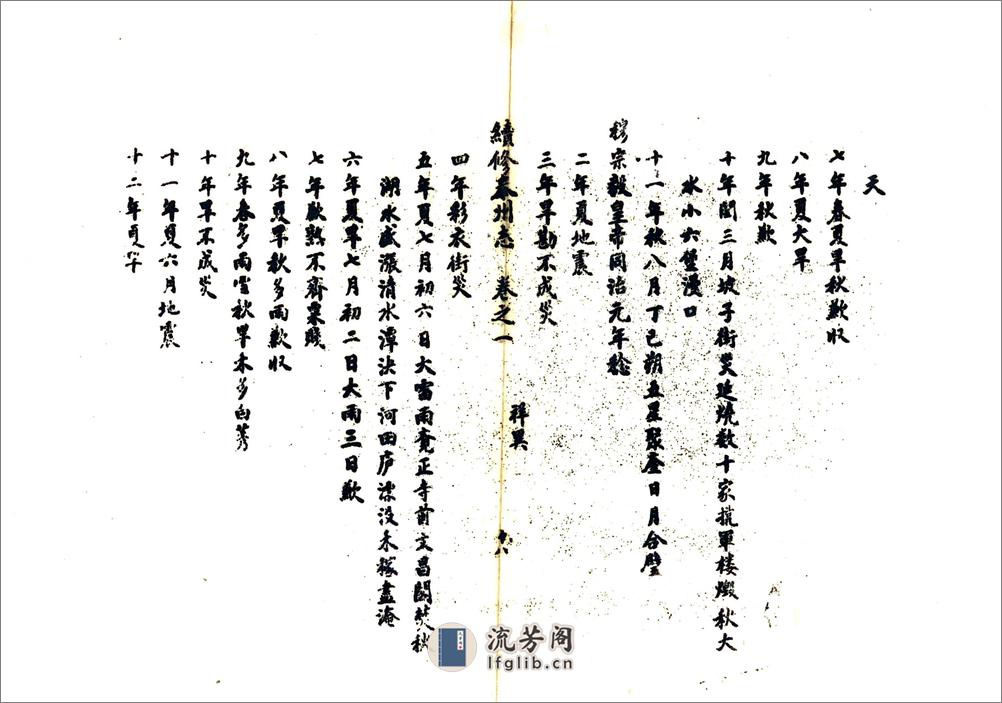 天
七年春夏旱秋歉收
八年夏大旱
九年秋歉
十年閏三月坡子街災延燒数十家㨪軍楼燬秋大
水小六堡漫口
十一年秋八月丁巳朔五星聚奎日月合璧
穆宗毅皇帝同治元年稔
二年夏地震
三年旱勘不成災
續修泰州志 卷之一 祥異 十八
四年彩衣街災
五年夏七月初六日大雷雨 正寺前文昌閣焚秋
湖水盛漲清水潭決下河田庐漂没禾稼盡淹
六年夏旱七月初二日大雨三日歉
七年歉熟不齊粟賤
八年夏旱秋多雨歉收
九年春多雨雪秋旱禾多白莠
十年旱不成災
十一年夏六月地震
十二年夏旱
流芳阁
lfglib.cn